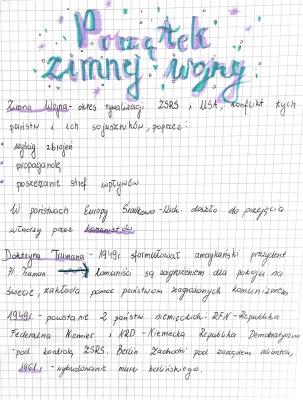 Początek
zimnej wojny
Zimna Wojna - okres rywalizacji ZSRS i USA, konflikt tych
państw i ich sojuszników, poprzez:
• wyścig zbrojeń
• propagandę
• poszerzanie stref wpływów
W państwach Europy Środkowo-Wsch. doszło do przejęcia
władzy przez komunistów
Doktryna Trumana - 1949r. sformułował amerykański prezydent
H. Truman → komuniści są zagrożeniem dla pokoju na
świecie, zakłada pomoc państwom zagrożonych komunizmem
1949r. - powstanie 2 państw niemieckich: RFN - Republika
Federalna Niemiec i NRD - Niemiecka Republika Demokratyczna
- pod kontrolą ZSRS. Berlin Zachodni pod zarządem aliantów,
1961r. - wybudowanie muru berlińskiego.